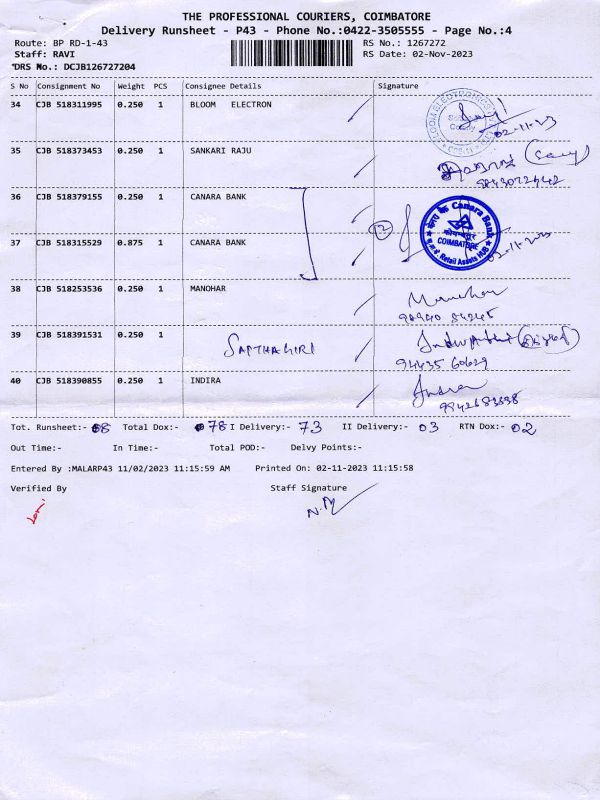 THE PROFESSIONAL COURIERS, COIMBATORE
Delivery Runsheet - P43 - Phone No.:0422-3505555 - Page No.:4
Route: BP RD-1-43 RS No.: 1267272
Staff: RAVI RS Date: 02-Nov-2023
*DRS No.: DCJB126727204
S No Consignment No Weight PCS Consignee Details Signature
34 CJB 518311995 0.250 1 BLOOM ELECTRON
02-11-23
35 CJB 518373453 0.250 1 SANKARI RAJU
36 CJB 518379155 0.250 1 CANARA BANK
12
Canara Bank
COIMBATORE
Retail Assets HUB
37 CJB 518315529 0.875 1 CANARA BANK
02-11-23
38 CJB 518253536 0.250 1 MANOHAR
Manohar
90940 84245
39 CJB 518391531 0.250 1 SAPTHAGIRI
94435 60629
40 CJB 518390855 0.250 1 INDIRA
Indira
9942683838
Tot. Runsheet:- 08 Total Dox:- 78 I Delivery:- 73 II Delivery:- 03 RTN Dox:- 02
Out Time:- In Time:- Total POD:- Delvy Points:-
Entered By :MALARP43 11/02/2023 11:15:59 AM Printed On: 02-11-2023 11:15:58
Verified By Staff Signature